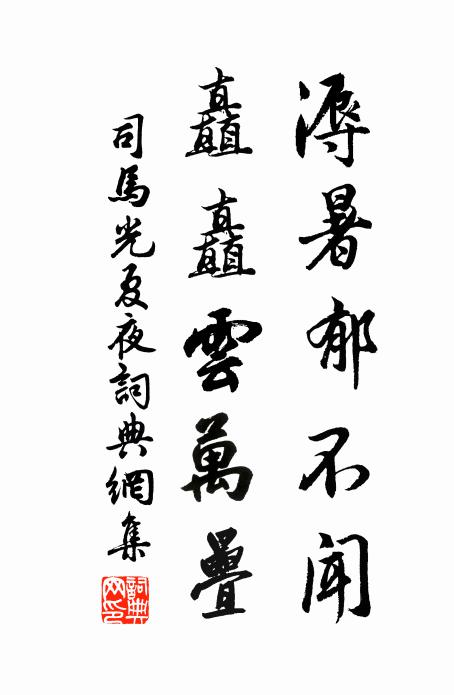 溽暑郁不闻
矗矗雲萬疊
司馬光夏夜詞典網集
詞典网印